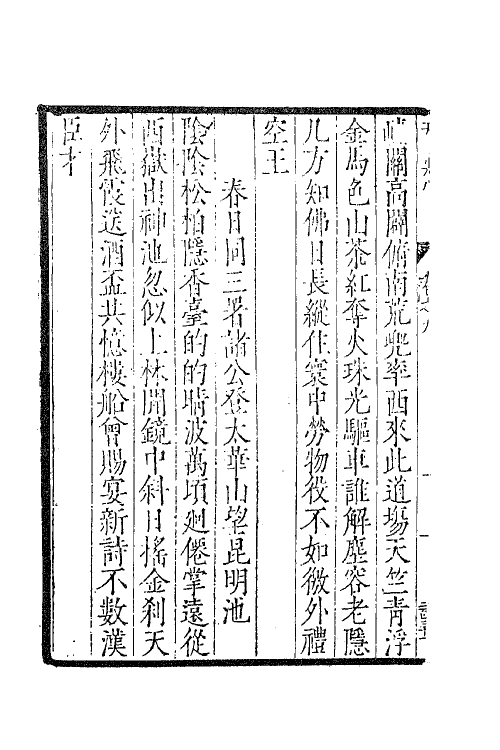 㟥關高闢俯南荒兜率西來此道場天竺青浮
金馬色山茶紅奪火珠光驅車誰解塵容老隱
几方知佛日長縱住寰中勞物役不如徼外禮
空王
春日同三署諸公登太華山望昆明池
陰陰松柏隱香臺的的晴波萬頃迴僊掌遠從
西嶽出神池忽似上林開鏡中斜日搖金剎天
外飛霞送酒盃共憶樓船曾賜宴新詩不數漢
臣才